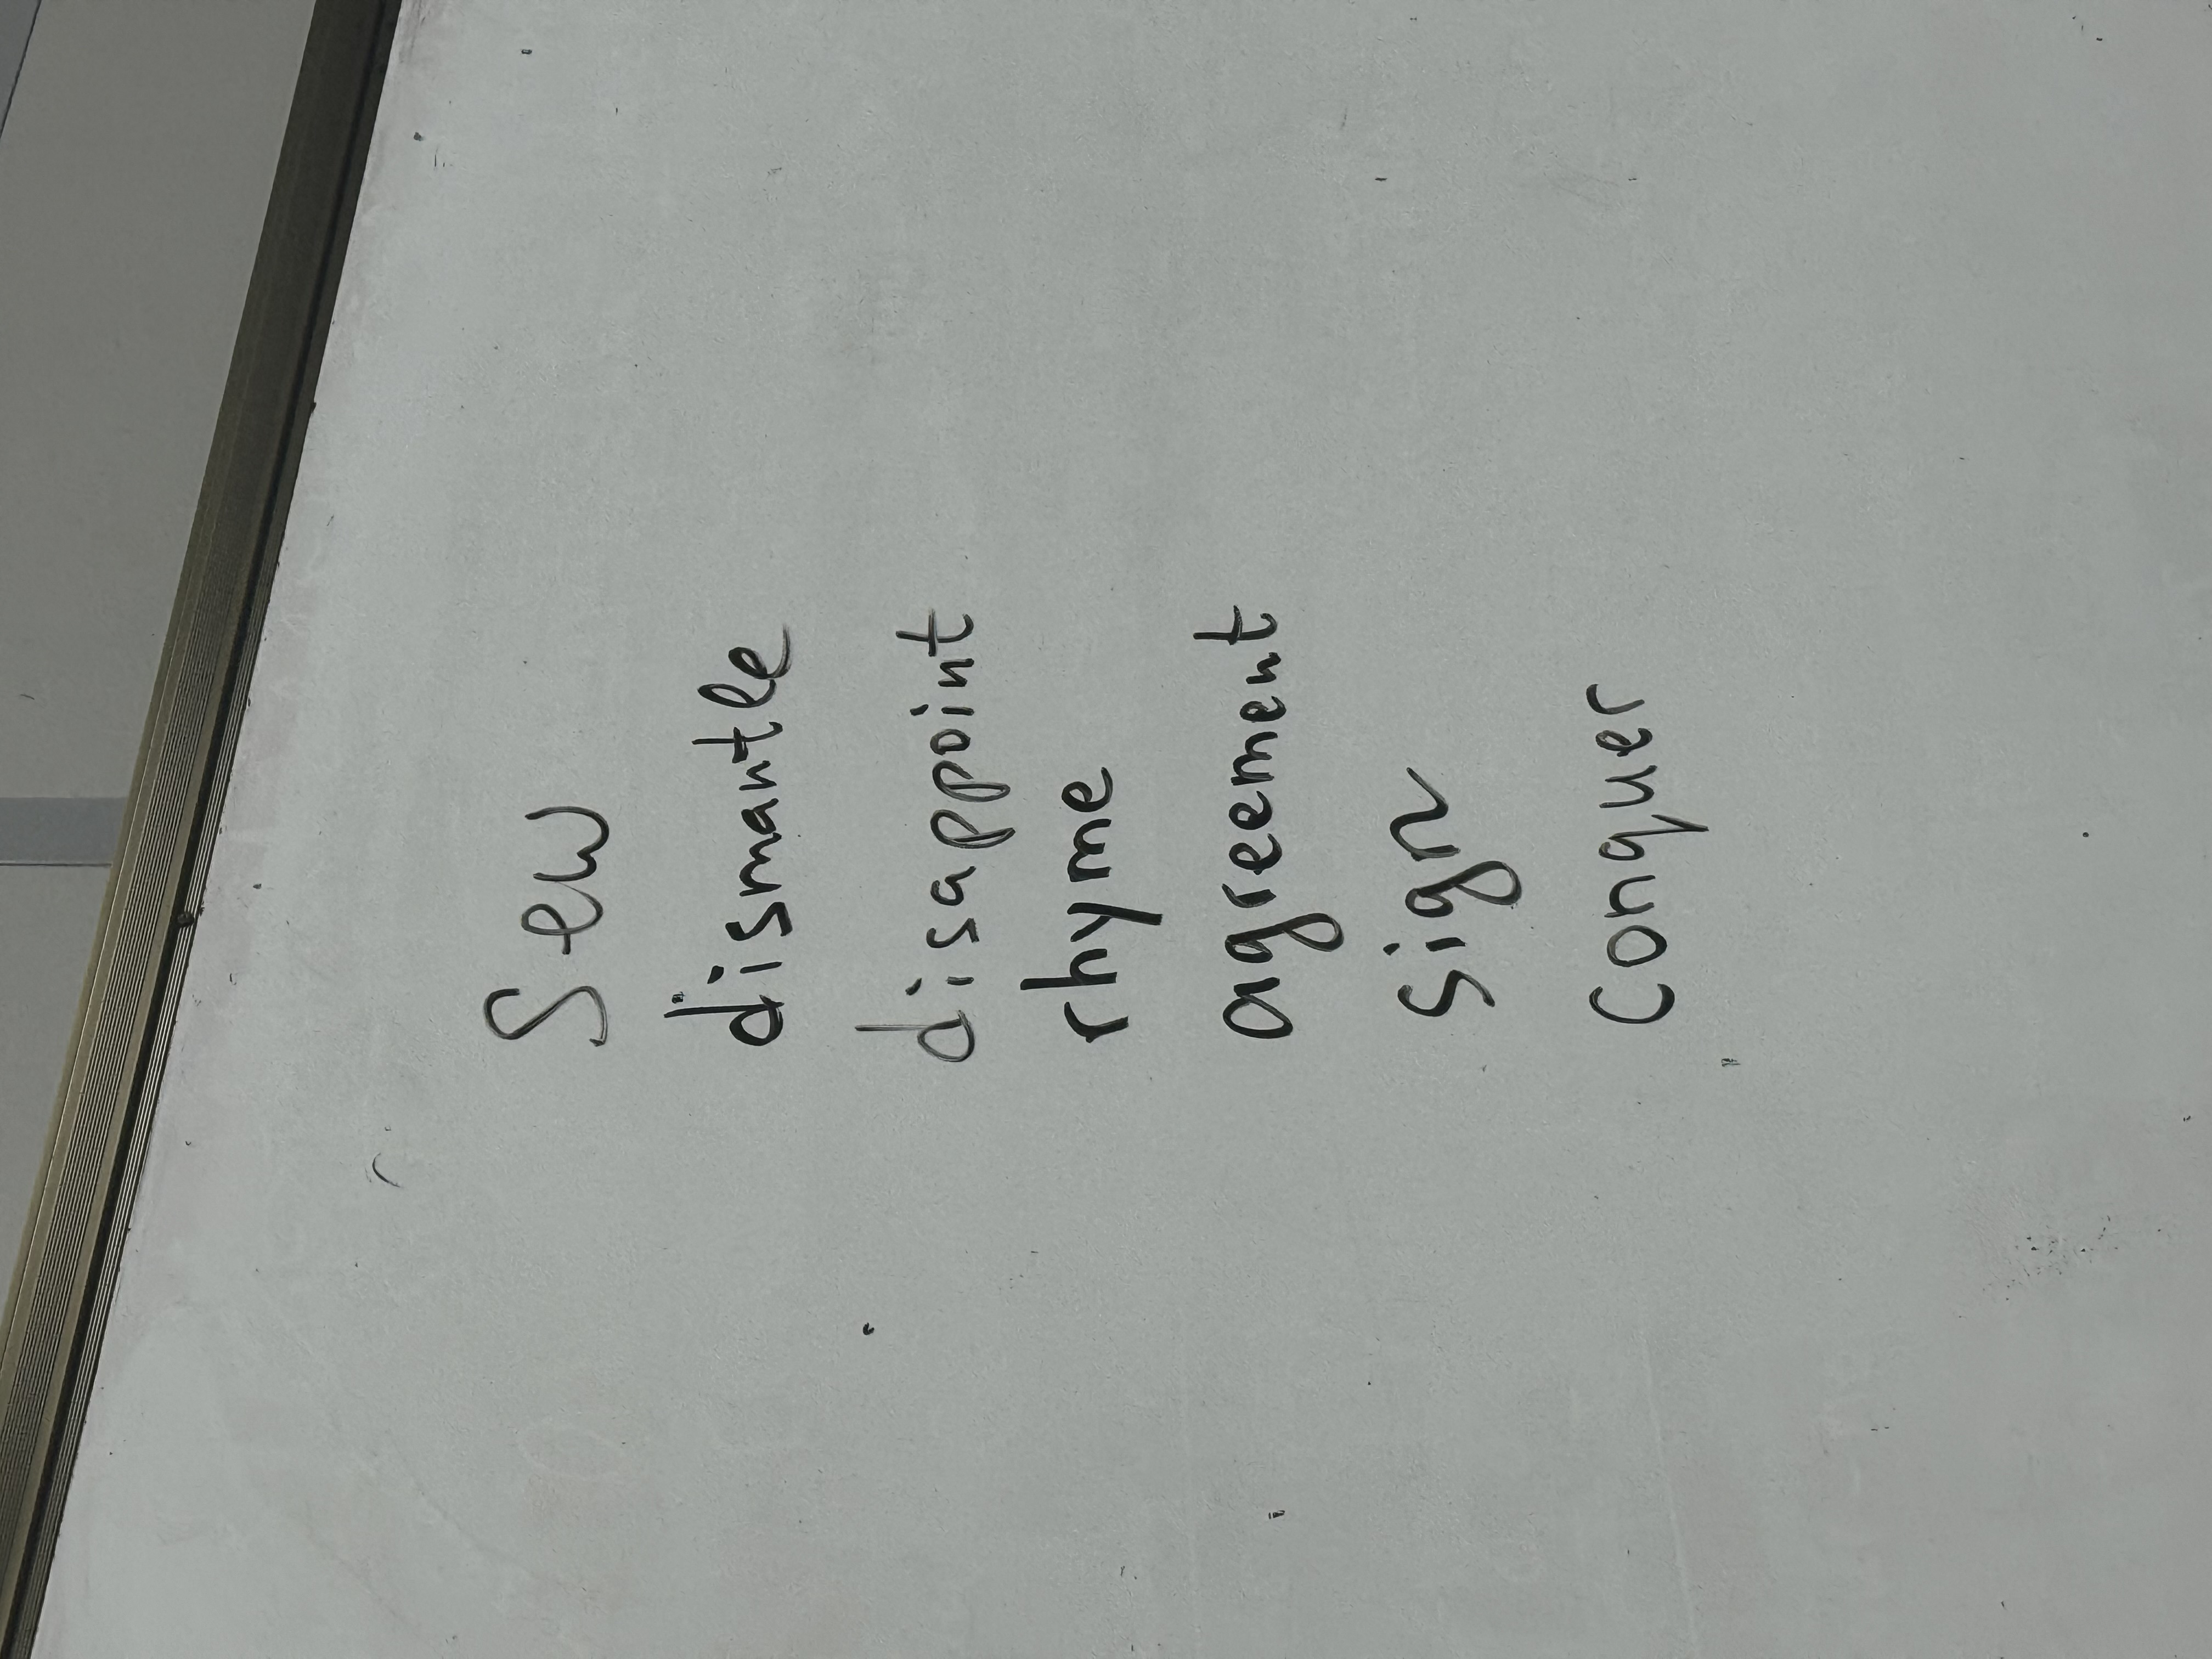 Sew
dismantle
disappoint
rhyme
agreement
sign
conquer